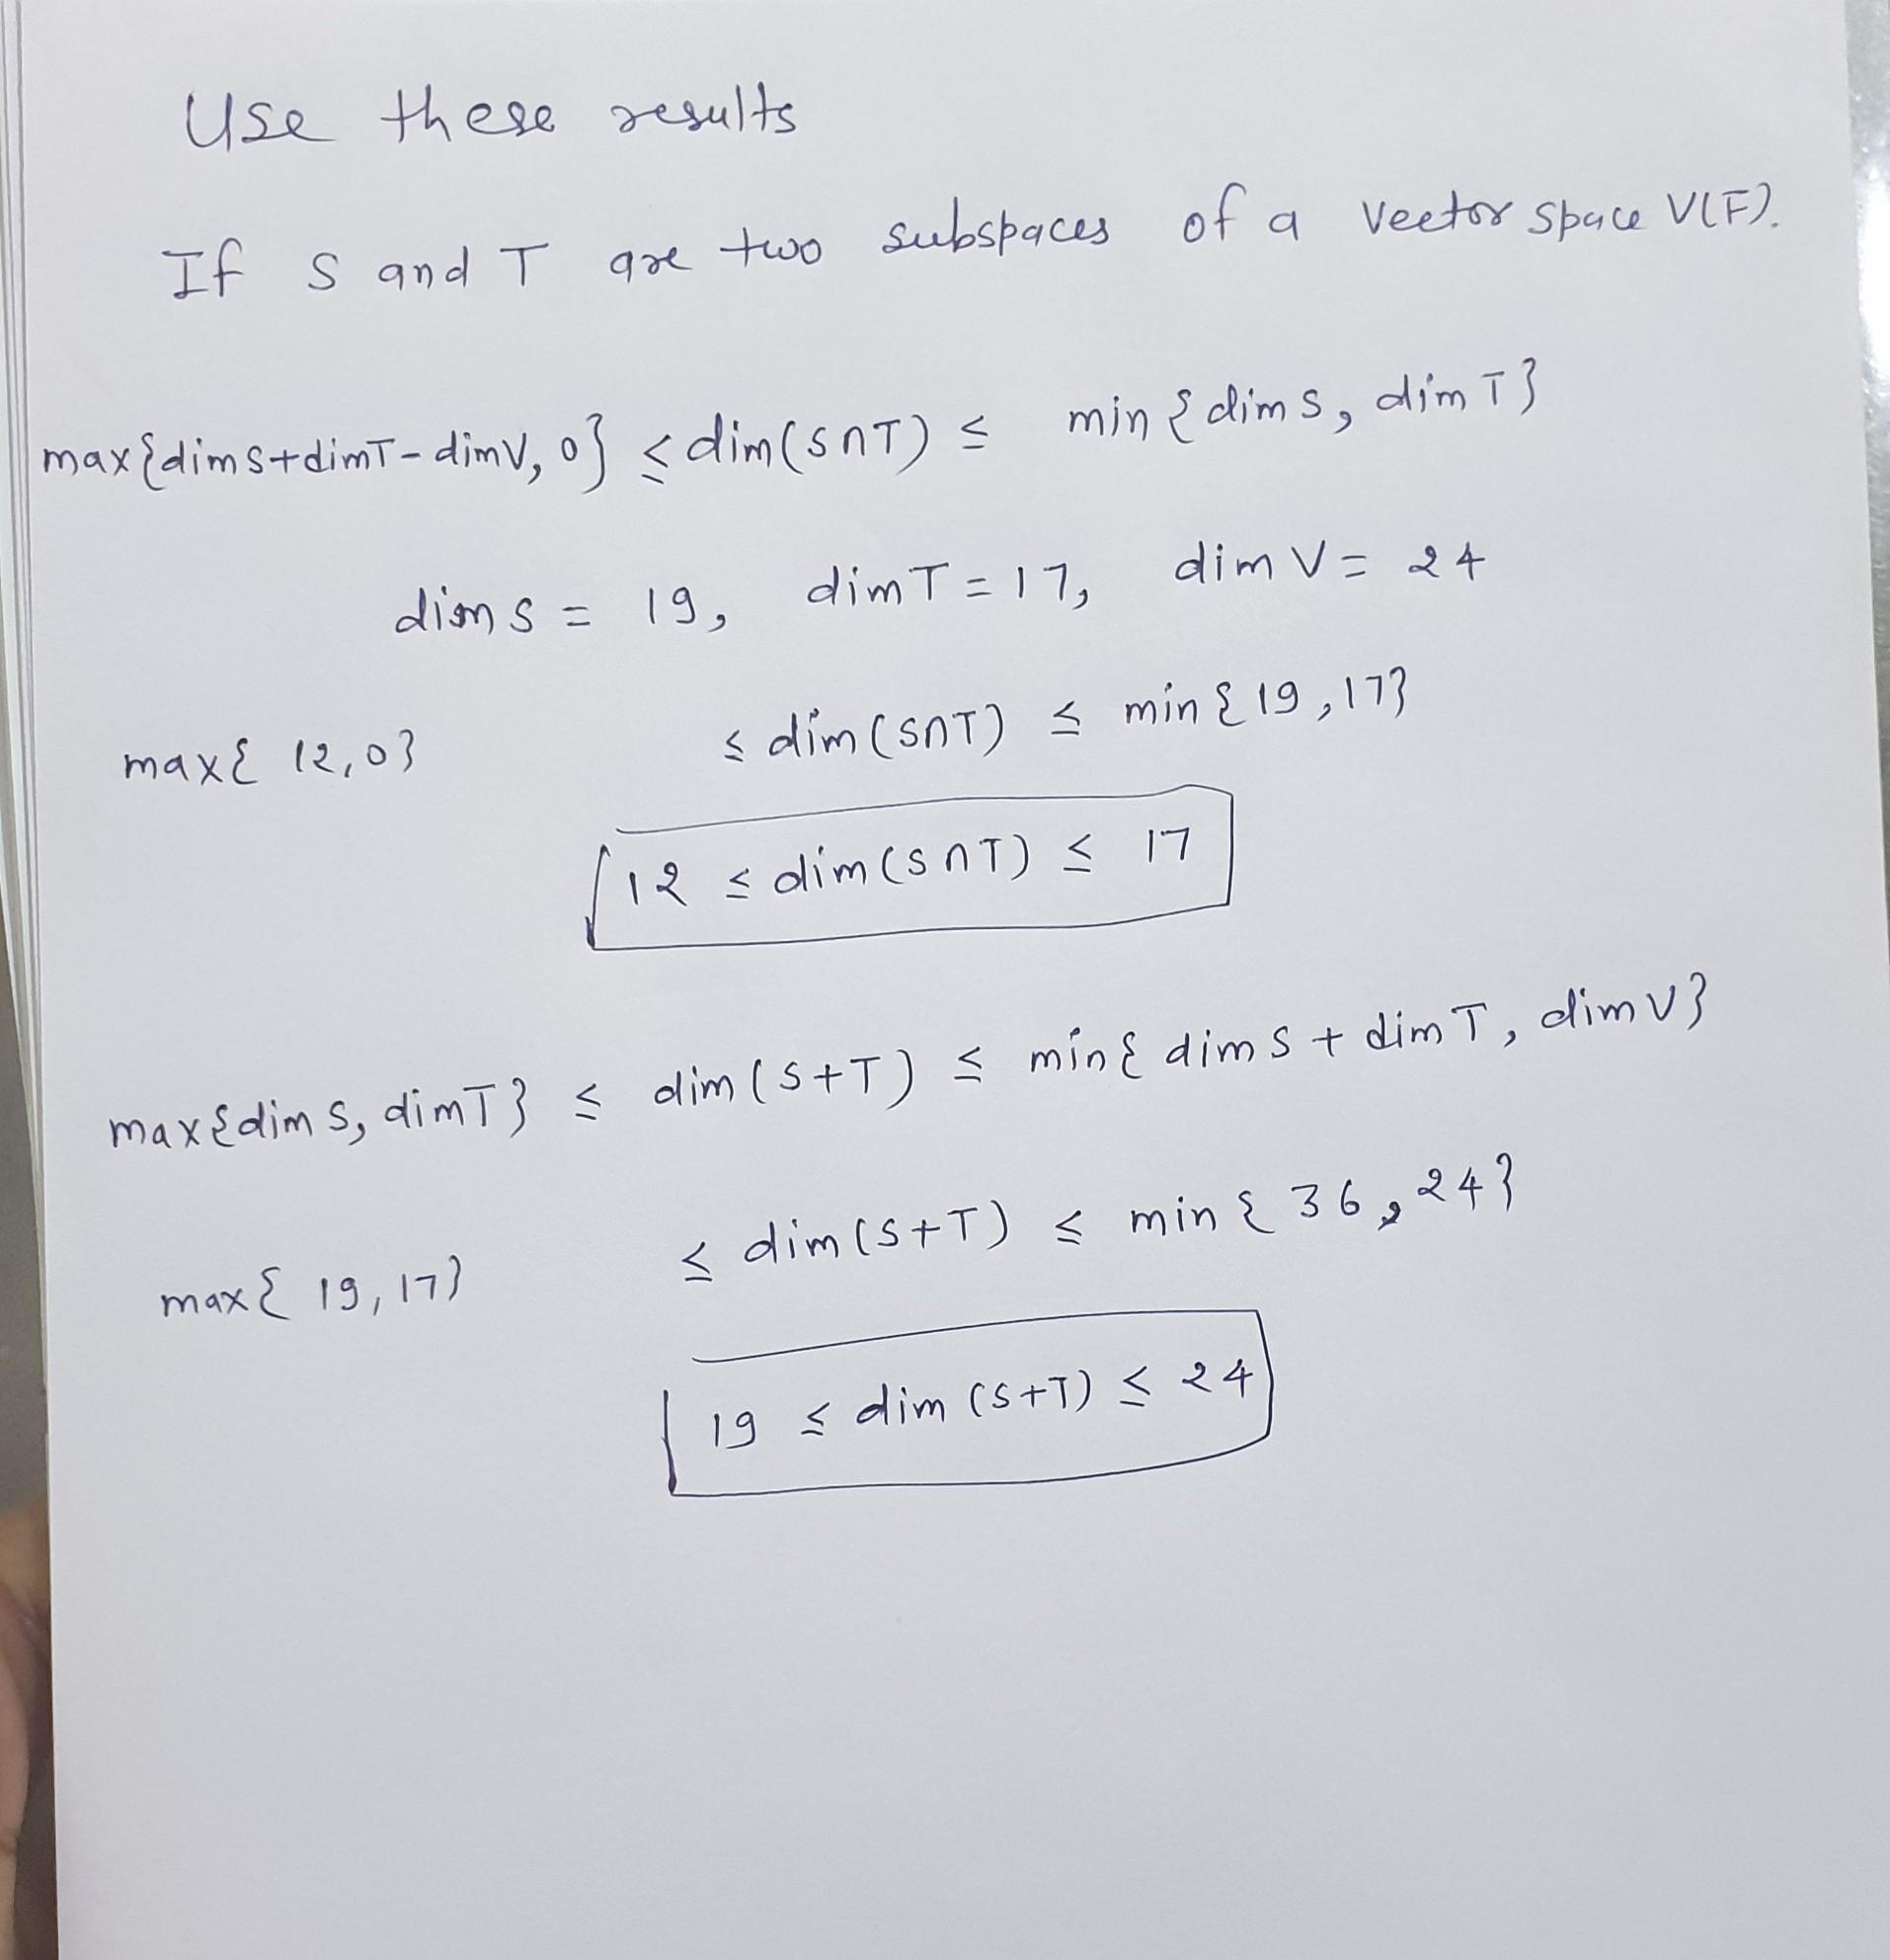 Use these results
If S and T are two subspaces of a Vector space V(F).
max{dim S + dim T - dim V, 0} ≤ dim(S∩T) ≤ min {dim S, dim T}
dim S = 19, dim T = 17, dim V = 24
max{ 12, 0} ≤ dim(S∩T) ≤ min{ 19, 17}
12 ≤ dim(S∩T) ≤ 17
max{dim S, dim T} ≤ dim(S+T) ≤ min{ dim S + dim T, dim V}
max{ 19, 17} ≤ dim(S+T) ≤ min { 36, 24}
19 ≤ dim (S+T) ≤ 24